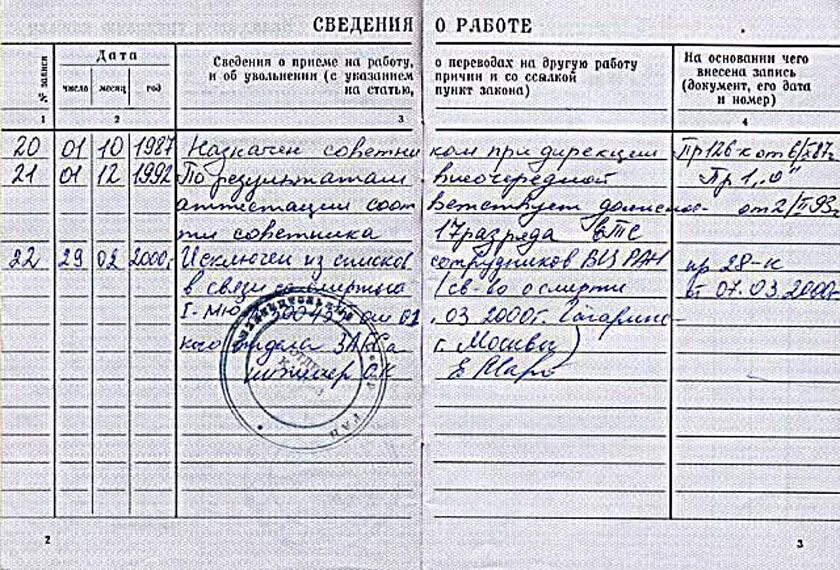 СВЕДЕНИЯ О РАБОТЕ
№ записи
Дата
число месяц год
Сведения о приеме на работу, о переводах на другую работу
и об увольнении (с указанием причин и со ссылкой
на статью, пункт закона)
На основании чего
внесена запись
(документ, его дата
и номер)
1 2 3 4
20 01 10 1987 Назначен советником при дирекции Пр 126 к от 6/X 87г.
21 01 12 1992 По результатам внеочередной Пр 1
аттестации соответствует должнос- от 2/II 93г.
ти советника 17 разряда ЕТС
22 29 02 2000г. Исключен из списков сотрудников ВЦ РАН пр 28-к
в связи со смертью (св-во о смерти от 07.03.2000г.
I-МЮ от 01.03.2000г. Гагаринс-
кого отдела ЗАГСа г. Москвы)
О.К.
РАН
2
3